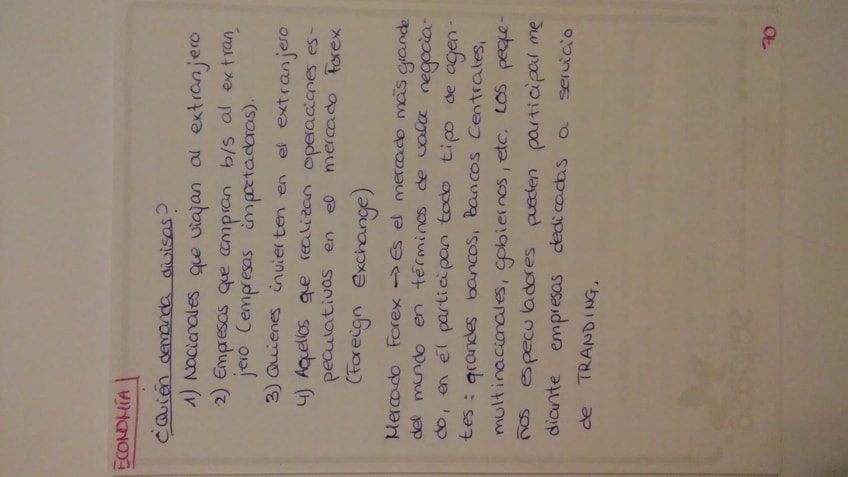 ECONOMÍA
¿Quién demanda divisas?
1) Nacionales que viajan al extranjero
2) Empresas que compran b/s al extran-
jero (empresas importadoras).
3) Quienes invierten en el extranjero
4) Aquellos que realizan operaciones es-
peculativas en el mercado Forex
(Foreign Exchange)
Mercado Forex → Es el mercado más grande
del mundo en términos de valor negocia-
do, en él participan todo tipo de agen-
tes: grandes bancos, Bancos Centrales,
multinacionales, gobiernos, etc. Los peque-
ños especuladores pueden participar me
diante empresas dedicadas a servicio
de TRANDING.
70